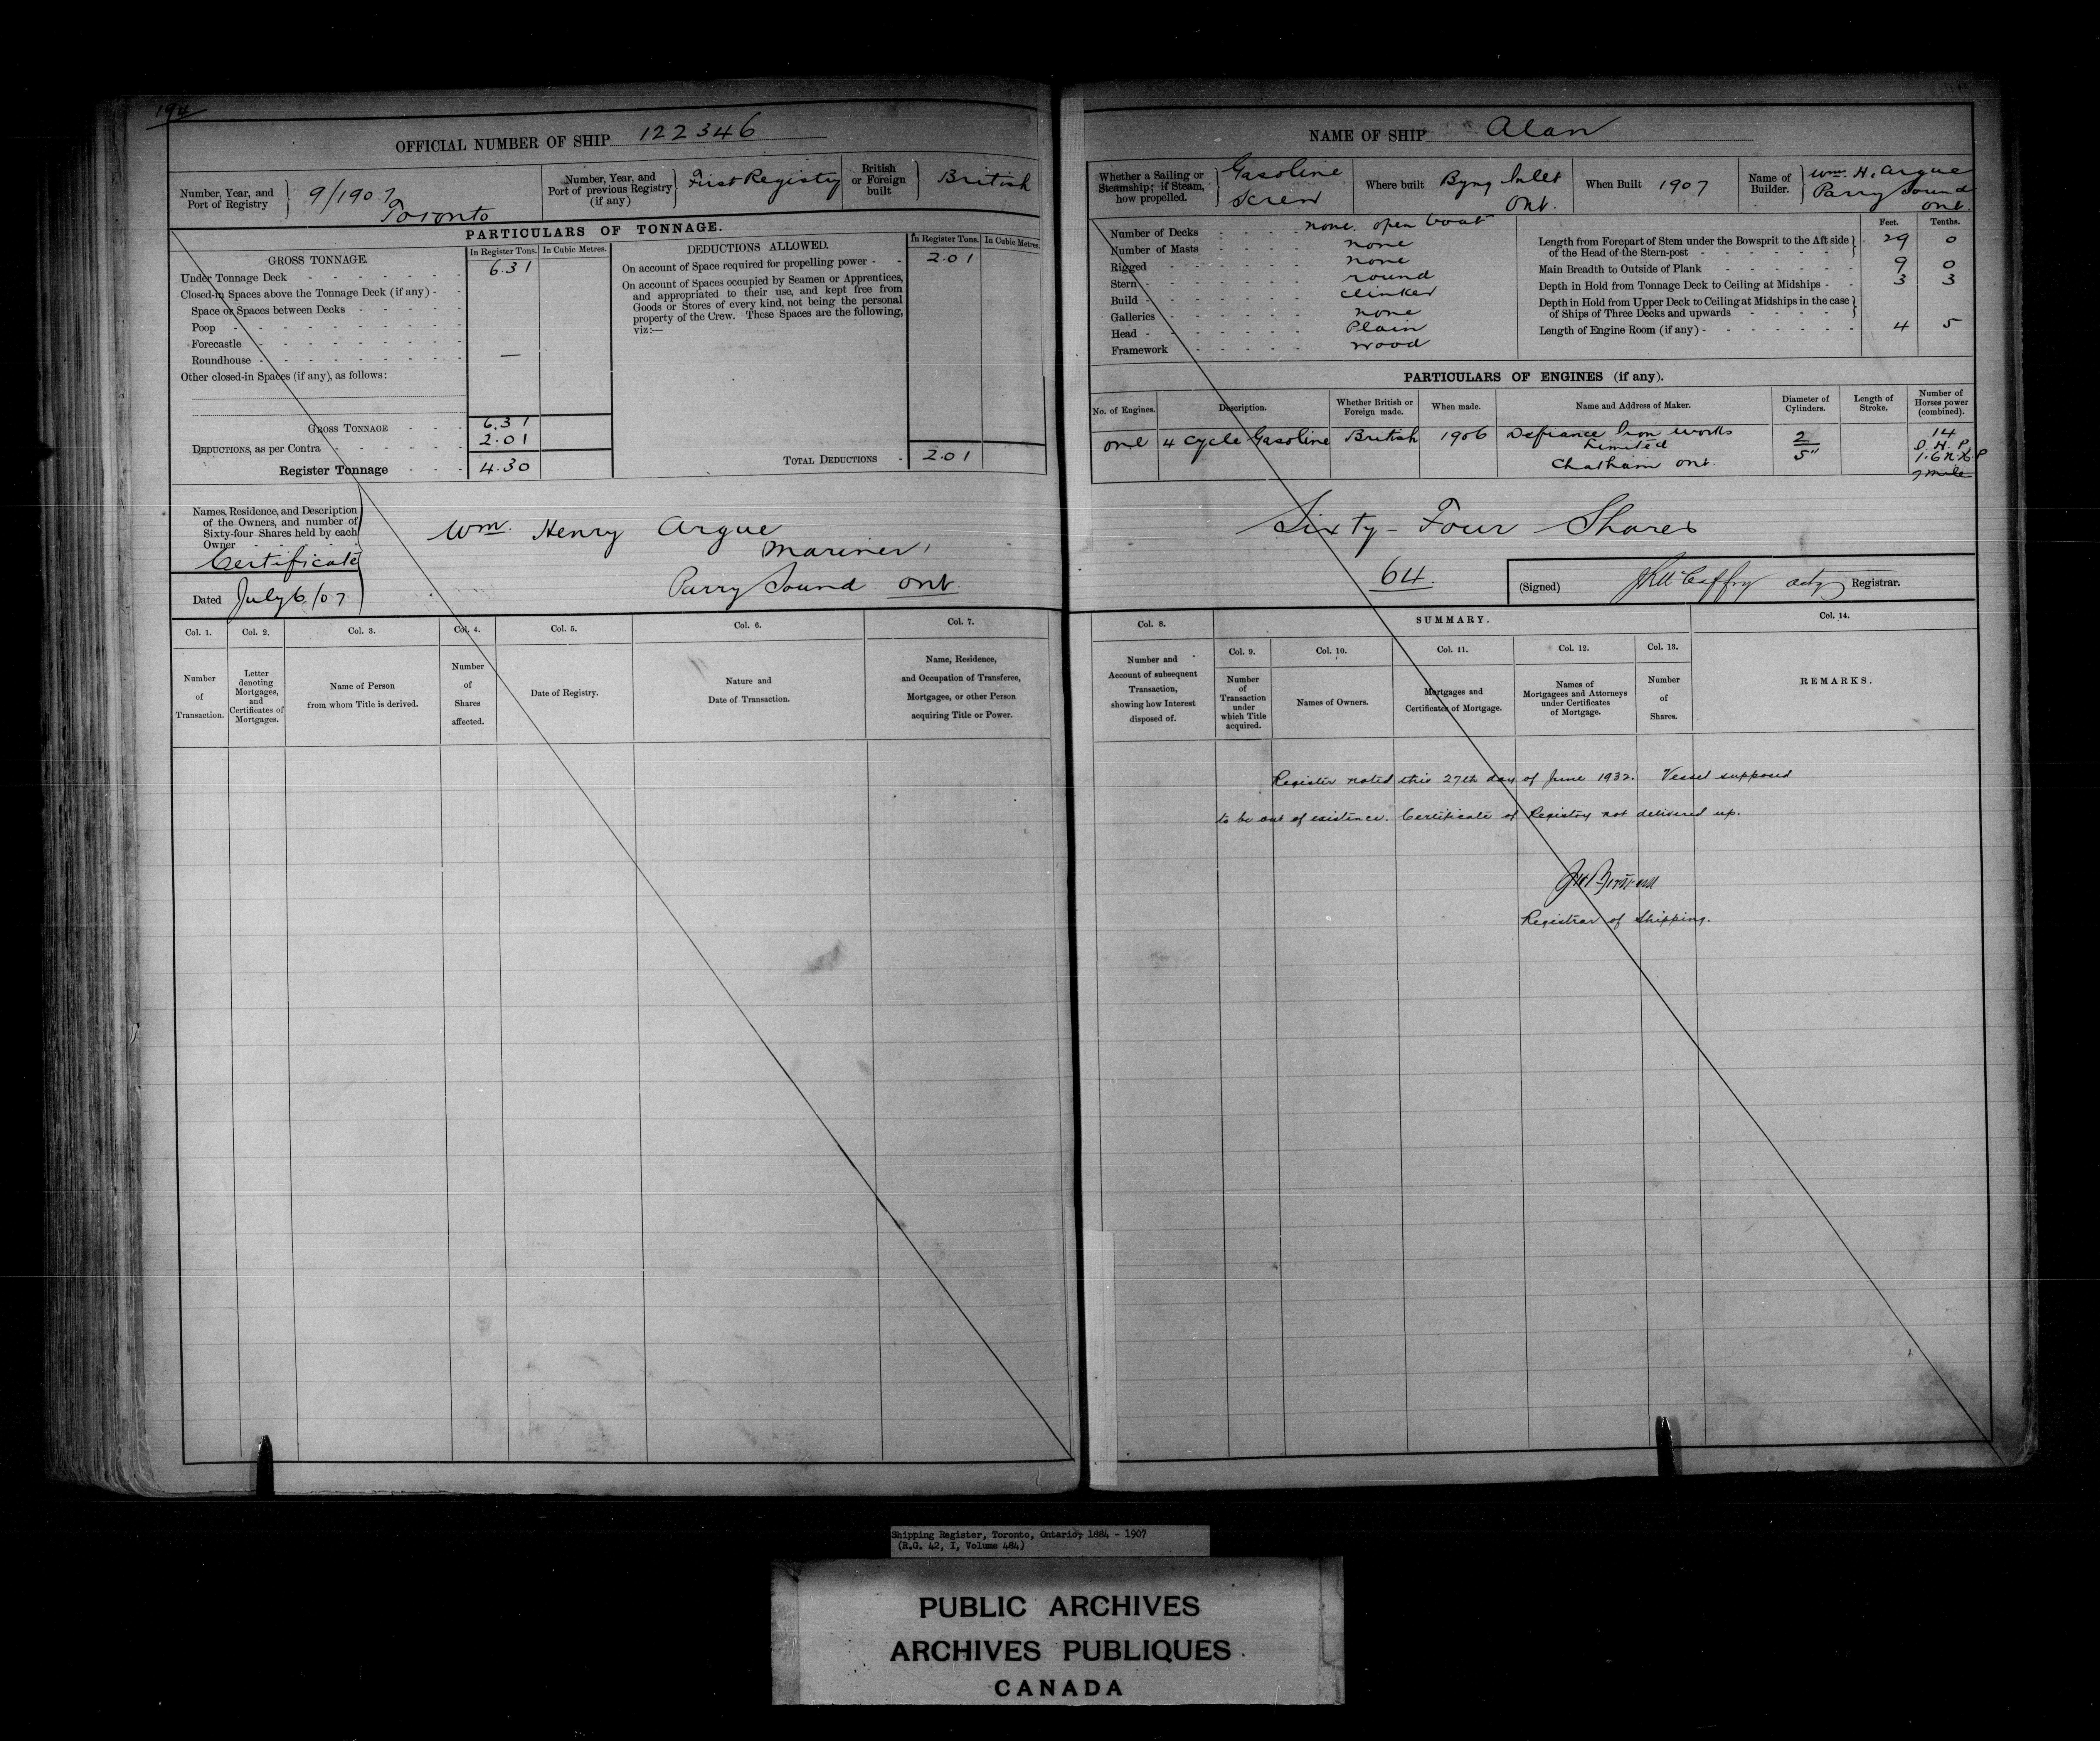 194
OFFICIAL NUMBER OF SHIP 122346
Number, Year, and Port of Registry 9/1907 Toronto
Number, Year, and Port of previous Registry (if any) First Registry
British or Foreign built British
PARTICULARS OF TONNAGE.
GROSS TONNAGE. In Register Tons. In Cubic Metres.
Under Tonnage Deck 6.31
Closed-in Spaces above the Tonnage Deck (if any)
Space or Spaces between Decks
Poop
Forecastle
Roundhouse —
Other closed-in Spaces (if any), as follows:
GROSS TONNAGE 6.31
DEDUCTIONS, as per Contra 2.01
Register Tonnage 4.30
DEDUCTIONS ALLOWED. In Register Tons. In Cubic Metres.
On account of Space required for propelling power 2.01
On account of Spaces occupied by Seamen or Apprentices,
and appropriated to their use, and kept free from
Goods or Stores of every kind, not being the personal
property of the Crew. These Spaces are the following,
viz:—
TOTAL DEDUCTIONS 2.01
Names, Residence, and Description
of the Owners, and number of
Sixty-four Shares held by each
Owner
Certificate
Dated July 6/07
Wm. Henry Argue
Mariner,
Parry Sound Ont.
Col. 1. Col. 2. Col. 3. Col. 4. Col. 5. Col. 6. Col. 7.
Number of Transaction.
Letter denoting Mortgages, and Certificates of Mortgages.
Name of Person from whom Title is derived.
Number of Shares affected.
Date of Registry.
Nature and Date of Transaction.
Name, Residence, and Occupation of Transferee, Mortgagee, or other Person acquiring Title or Power.
NAME OF SHIP Alan
Whether a Sailing or Steamship; if Steam, how propelled. Gasoline Screw
Where built Byng Inlet Ont.
When Built 1907
Name of Builder. Wm. H. Argue Parry Sound Ont.
Number of Decks none. open boat
Number of Masts none
Rigged none
Stern round
Build clinker
Galleries none
Head Plain
Framework wood
Feet. Tenths.
Length from Forepart of Stem under the Bowsprit to the Aft side of the Head of the Stern-post 29 0
Main Breadth to Outside of Plank 9 0
Depth in Hold from Tonnage Deck to Ceiling at Midships 3 3
Depth in Hold from Upper Deck to Ceiling at Midships in the case of Ships of Three Decks and upwards
Length of Engine Room (if any) 4 5
PARTICULARS OF ENGINES (if any).
No. of Engines. Description. Whether British or Foreign made. When made. Name and Address of Maker. Diameter of Cylinders. Length of Stroke. Number of Horses power (combined).
one 4 Cycle Gasoline British 1906 Defiance Iron works Limited Chatham Ont. 2 5" 14 I. H. P. 1.6 N.H.P
Sixty-Four Shares
64.
(Signed) Registrar.
Col. 8. SUMMARY. Col. 14.
Col. 9. Col. 10. Col. 11. Col. 12. Col. 13.
Number and Account of subsequent Transaction, showing how Interest disposed of.
Number of Transaction under which Title acquired.
Names of Owners.
Mortgages and Certificates of Mortgage.
Names of Mortgagees and Attorneys under Certificates of Mortgage.
Number of Shares.
REMARKS.
Register noted this 27th day of June 1932. Vessel supposed
to be out of existence. Certificate of Registry not delivered up.
Registrar of Shipping.
Shipping Register, Toronto, Ontario, 1884 - 1907
(R.G. 42, I, Volume 484)
PUBLIC ARCHIVES
ARCHIVES PUBLIQUES
CANADA